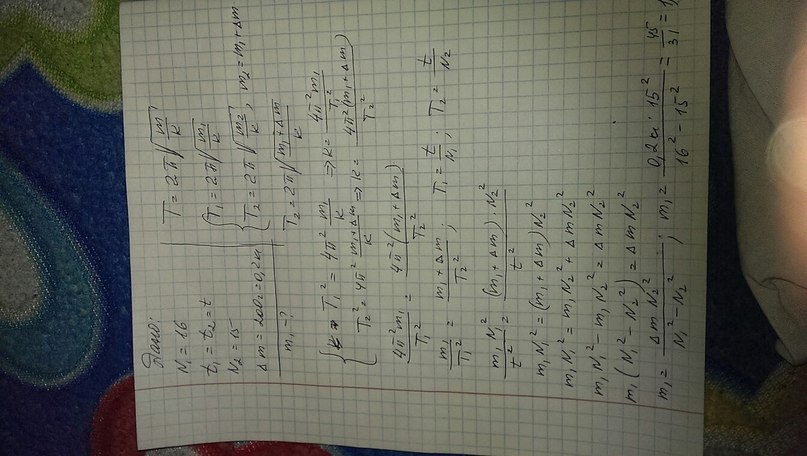 Дано:
N₁ = 16
t₁ = t₂ = t
N₂ = 15
Δm = 200г = 0,2кг
m₁ - ?
T = 2π√(m/k)
{T₁ = 2π√(m₁/k)
{T₂ = 2π√(m₂/k), m₂ = m₁ + Δm
T₂ = 2π√((m₁ + Δm)/k)
{T₁² = 4π² m₁/k ⇒ k = 4π²m₁/T₁²
{T₂² = 4π² (m₁ + Δm)/k ⇒ k = 4π²(m₁ + Δm)/T₂²
4π²m₁/T₁² = 4π²(m₁ + Δm)/T₂²
m₁/T₁² = (m₁ + Δm)/T₂² ; T₁ = t/N₁ ; T₂ = t/N₂
m₁N₁²/t² = (m₁ + Δm)·N₂²/t²
m₁N₁² = (m₁ + Δm)N₂²
m₁N₁² = m₁N₂² + ΔmN₂²
m₁N₁² - m₁N₂² = ΔmN₂²
m₁(N₁² - N₂²) = ΔmN₂²
m₁ = ΔmN₂²/(N₁² - N₂²) ; m₁ = 0,2кг·15²/(16² - 15²) = 45/31 = 1,